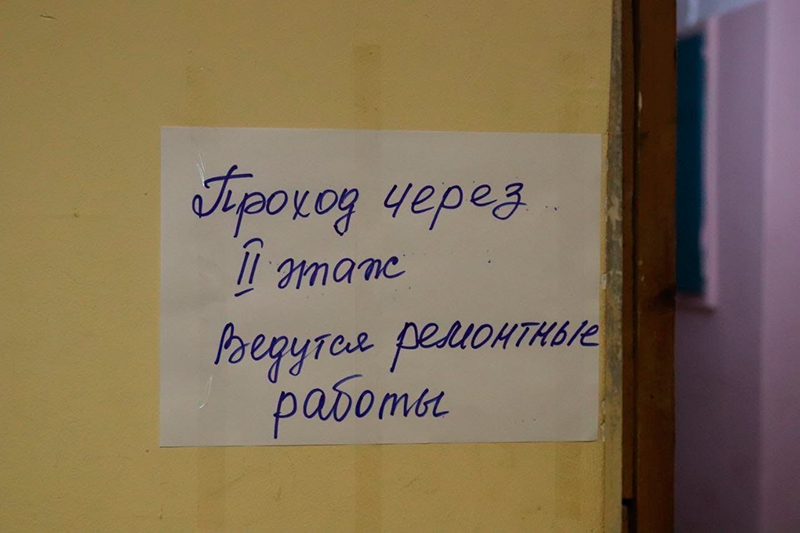 Проход через
II этаж
Ведутся ремонтные
работы